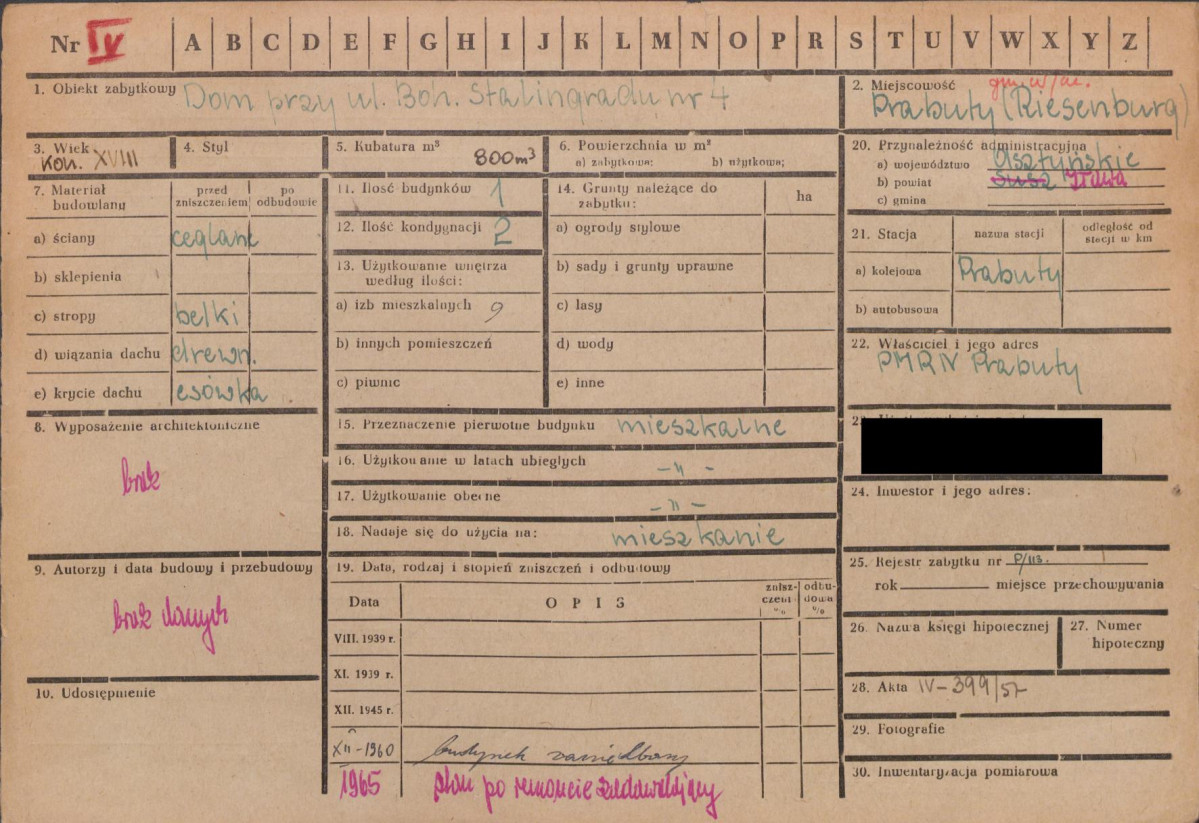 Nr IV A B C D E F G H I J K L M N O P R S T U V W X Y Z
1. Obiekt zabytkowy Dom przy ul. Boh. Stalingradu nr 4
2. Miejscowość
Prabuty (Riesenburg)
3. Wiek
Kon. XVIII
4. Styl
5. Kubatura m³ 800 m³
6. Powierzchnia w m²
a) zabytkowa: b) użytkowa:
7. Materiał budowlany
przed zniszczeniem
po odbudowie
a) ściany ceglane
b) sklepienia
c) stropy belki
d) wiązania dachu drewn.
e) krycie dachu esówka
8. Wyposażenie architektoniczne
brak
9. Autorzy i data budowy i przebudowy
brak danych
10. Udostępnienie
11. Ilość budynków 1
12. Ilość kondygnacji 2
13. Użytkowanie wnętrza
według ilości:
a) izb mieszkalnych 9
b) innych pomieszczeń
c) piwnic
14. Grunty należące do
zabytku:
ha
a) ogrody stylowe
b) sady i grunty uprawne
c) lasy
d) wody
e) inne
15. Przeznaczenie pierwotne budynku mieszkalne
16. Użytkowanie w latach ubiegłych -"-
17. Użytkowanie obecne -"-
18. Nadaje się do użycia na: mieszkanie
19. Data, rodzaj i stopień zniszczeń i odbudowy
Data OPIS
znisz-
czenia
%
odbu-
dowa
%
VIII. 1939 r.
XI. 1939 r.
XII. 1945 r.
XII-1960 budynek zaniedbany
1965 stan po remoncie zadawalający
20. Przynależność administracyjna
a) województwo Olsztyńskie
b) powiat Susz Iława
c) gmina
21. Stacja
nazwa stacji
odległość od
stacji w km
a) kolejowa Prabuty
b) autobusowa
22. Właściciel i jego adres
PMRN Prabuty
24. Inwestor i jego adres:
25. Rejestr zabytku nr P/113.
rok miejsce przechowywania
26. Nazwa księgi hipotecznej
27. Numer
hipoteczny
28. Akta IV-399/57
29. Fotografie
30. Inwentaryzacja pomiarowa